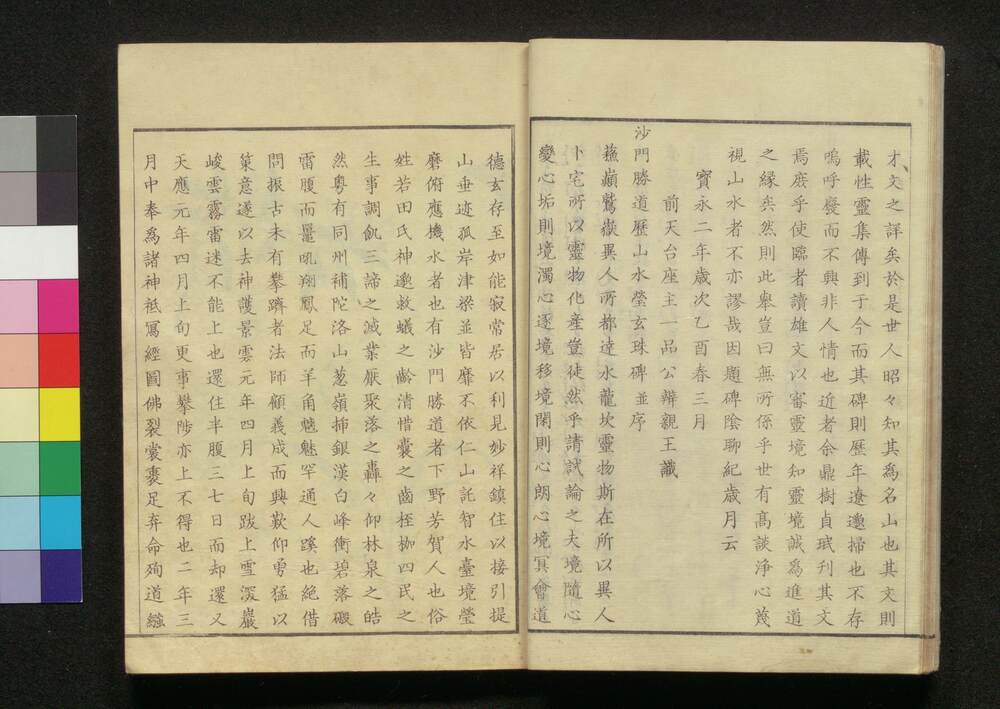 才文之詳矣於是世人昭々知其為名山也其文則
載性靈集傳到于今而其碑則歷年遼邈掃也不存
嗚呼廢而不興非人情也近者余鼎樹貞珉刊其文
焉庶乎使臨者讀雄文以審靈境知靈境誠為進道
之縁矣然則此舉豈曰無所係乎世有髙談淨心蔑
視山水者不亦謬哉因題碑陰聊紀歳月云
寳永二年歳次乙酉春三月
前天台座主一品公辯親王識
沙門勝道歷山水瑩玄珠碑並序
蘓巔鷲嶽異人所都達水龍坎靈物斯在所以異人
卜宅所以靈物化産豈徒然乎請試論之夫境隨心
變心垢則境濁心逐境移境閑則心朗心境冥會道
德玄存至如能寂常居以利見妙祥鎮住以接引提
山垂迹孤岸津梁並皆靡不依仁山託智水臺境瑩
磨俯應機水者也有沙門勝道者下野芳賀人也俗
姓若田氏神邈救蟻之齡清惜囊之齒桎枷四民之
生事調飢三諦之滅業厭聚落之轟々仰林泉之皓
然粤有同州補陀洛山葱嶺挿銀漢白峰衝碧落磤
雷腹而鼉吼翔鳳足而羊角魑魅罕通人蹊也絶借
問振古未有攀躋者法師顧義成而興歎仰勇猛以
策意遂以去神護景雲元年四月上旬跋上雪深巖
峻雲霧雷迷不能上也還住半腹三七日而却還又
天應元年四月上旬更事攀陟亦上不得也二年三
月中奉為諸神祇寫經圖佛裂裳裹足弃命殉道繈